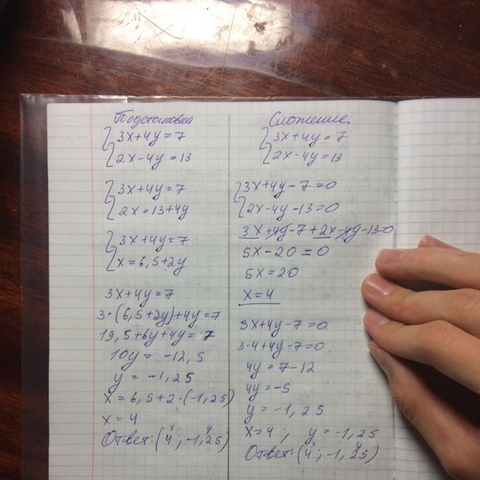 Подстановка
3x+4y=7
2x-4y=13
3x+4y=7
2x=13+4y
3x+4y=7
x=6,5+2y
3x+4y=7
3·(6,5+2y)+4y=7
19,5+6y+4y=7
10y=-12,5
y=-1,25
x=6,5+2·(-1,25)
x=4
x y
Ответ: (4; -1,25)
Сложение
3x+4y=7
2x-4y=13
3x+4y-7=0
2x-4y-13=0
3x+4y-7+2x-4y-13=0
5x-20=0
5x=20
x=4
3x+4y-7=0
3·4+4y-7=0
4y=7-12
4y=-5
y=-1,25
x=4; y=-1,25
x y
Ответ: (4; -1,25)